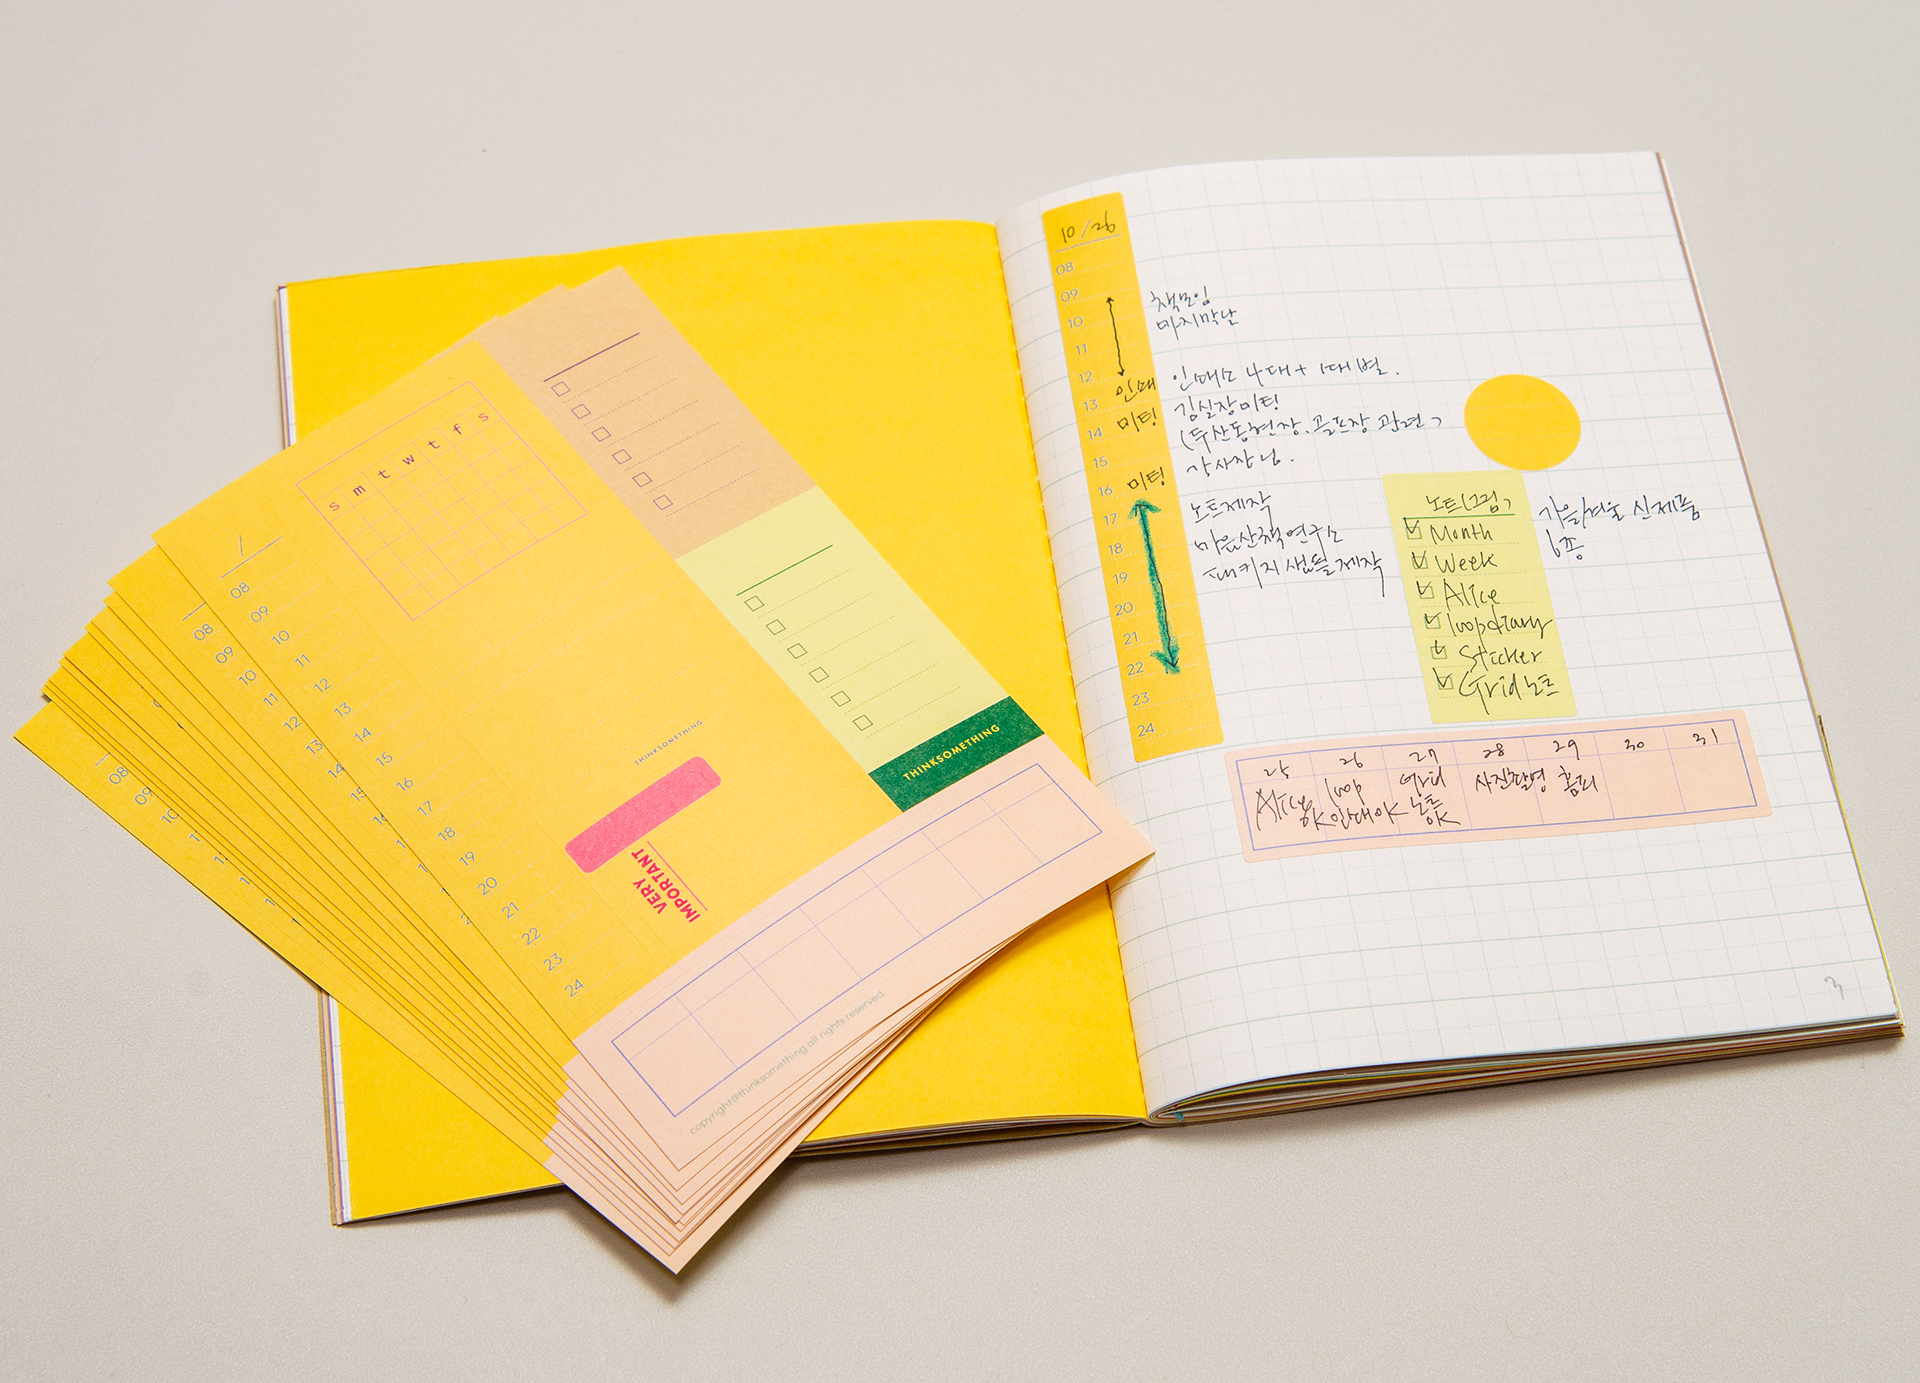 s m t w t f s
/
08
09
10
11
12
13
14
15
16
17
18
19
20
21
22
23
24
08
09
10
11
12
13
14
08
09
10
THINKSOMETHING
VERY
IMPORTANT
THINKSOMETHING
copyright@thinksomething all rights reserved
10/26
08
09
10
11
12 인때
13
14 미팅
15
16 미팅
17
18
19
20
21
22
23
24
책모임
마지막날
인때모 4대+1대 별.
김실장미팅
(두산동현장.골프장 관련
강사장님.
노트제작
마음산책연구소
패키지 샘플제작
노트(그림)
Month
Week
Alice
loopdiary
Sticker
Grid노트
가을/겨울 신제품
6종
25 26 27 28 29 30 31
Alice loop 사진촬영 홈피
노트
OK
3